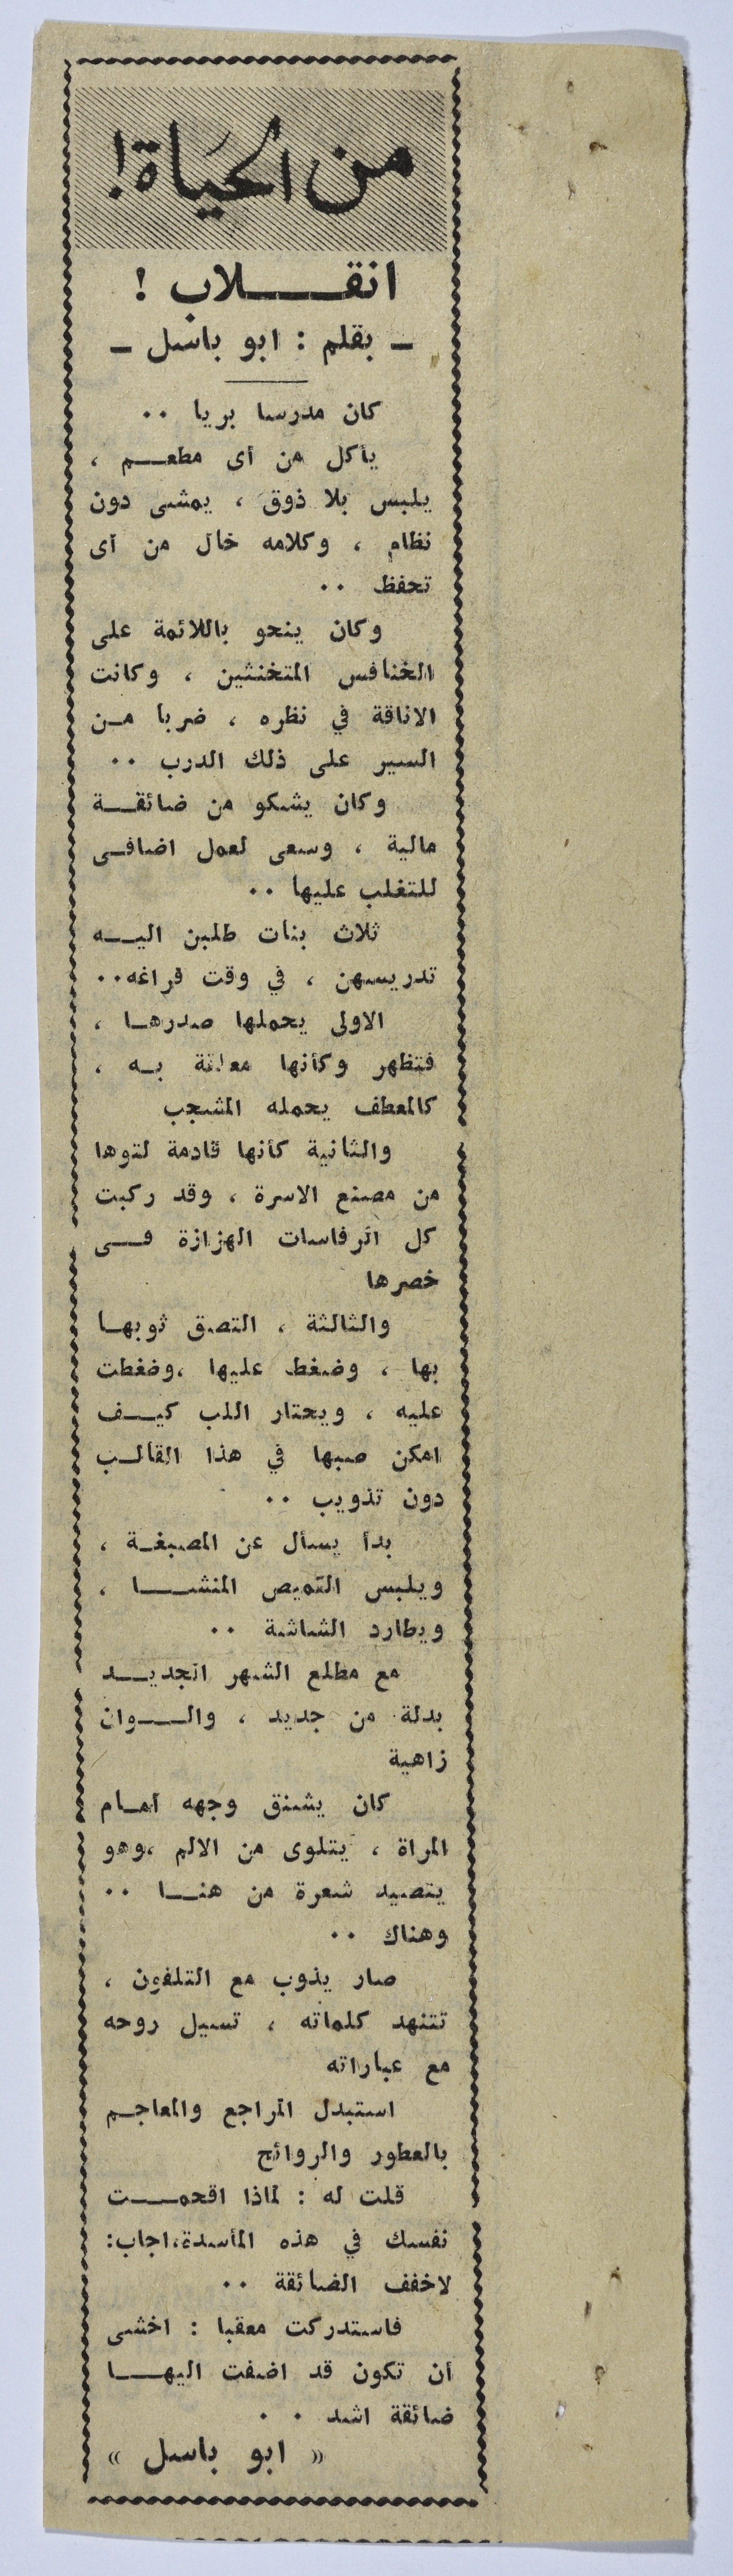 من الحياة!
انقـــلاب !
ـ بقلم : ابو باسل ـ
كان مدرسا بريا ٠٠
يأكل من أى مطعـــم ،
يلبس بلا ذوق ، يمشى دون
نظام ، وكلامه خال من أى
تحفظ ٠٠
وكان ينحو باللائمة على
الخنافس المتخنثين ، وكانت
الاناقة في نظره ، ضربا مـن
السير على ذلك الدرب ٠٠
وكان يشكو من ضائقـــة
مالية ، وسعى لعمل اضافـى
للتغلب عليها ٠٠
ثلاث بنات طلبن اليـــه
تدريسهن ، في وقت فراغه٠٠
الاولى يحملها صدرهـا ،
فتظهر وكأنها معلقة بـه ،
كالمعطف يحمله المشجب
والثانية كأنها قادمة لتوها
من مصنع الاسرة ، وقد ركبت
كل الرفاسات الهزازة فــى
خصرها
والثالثة ، التصق ثوبهـا
بها ، وضغط عليها ،وضغطت
عليه ، ويحتار اللب كيــف
امكن صبها في هذا القالـب
دون تذويب ٠٠
بدأ يسأل عن المصبغـة ،
ويلبس القميص المنشـــا ،
ويطارد الشاشة ٠٠
مع مطلع الشهر الجديـــد
بدلة من جديد ، والـــوان
زاهية
كان يشنق وجهه امـام
المراة ، يتلوى من الالم ،وهو
يتصيد شعرة من هنــا ٠٠
وهناك ٠٠
صار يذوب مع التلفون ،
تتنهد كلماته ، تسيل روحه
مع عباراته
استبدل المراجع والمعاجـم
بالعطور والروائح
قلت له : لماذا اقحمـــت
نفسك في هذه المأسدة،اجاب:
لاخفف الضائقة ٠٠
فاستدركت معقبا : اخشى
أن تكون قد اضفت اليهـــا
ضائقة اشد ٠ ٠
« ابو باسل »